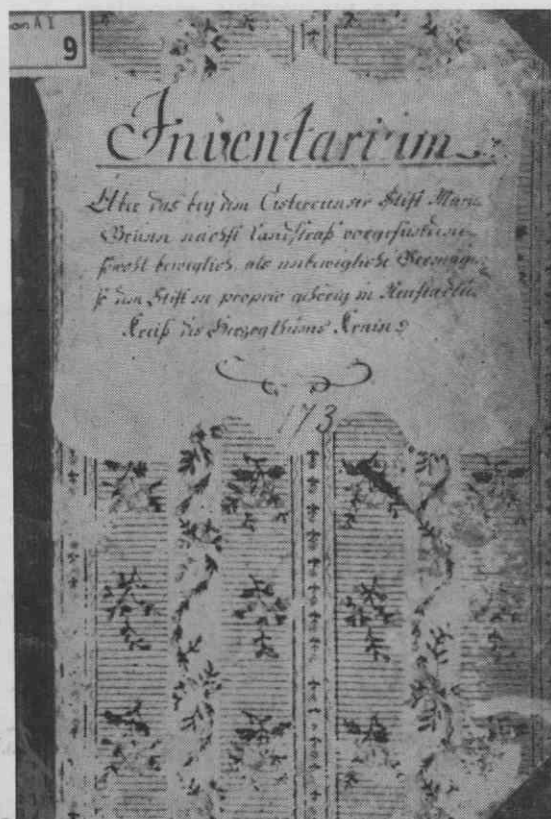 on A I
9
Inventarium
Über das bey dem Cistercienser Stift Maria
Brunn nachst Landstraß vorgefundene
sowohl beweglich, als unbewegliche Vermög
so dem Stift in proprio gehörig in Neustadtler
Kreiß des Herzogthums Krain
173